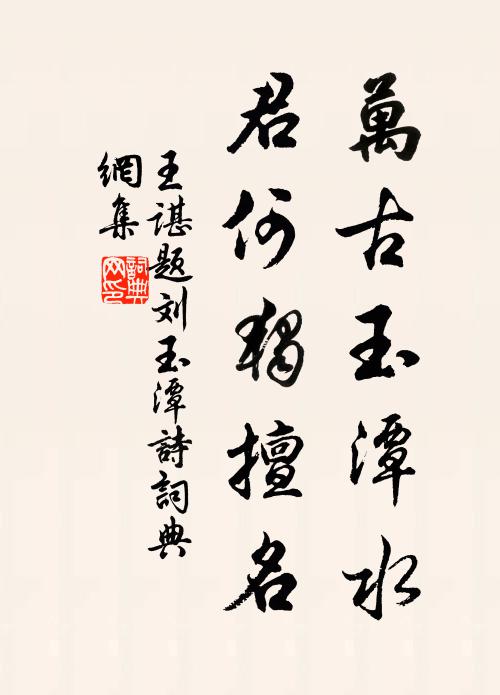 萬古玉潭水
君何獨擅名
王諶題刘玉潭詩詞典
網集
詞典
网印